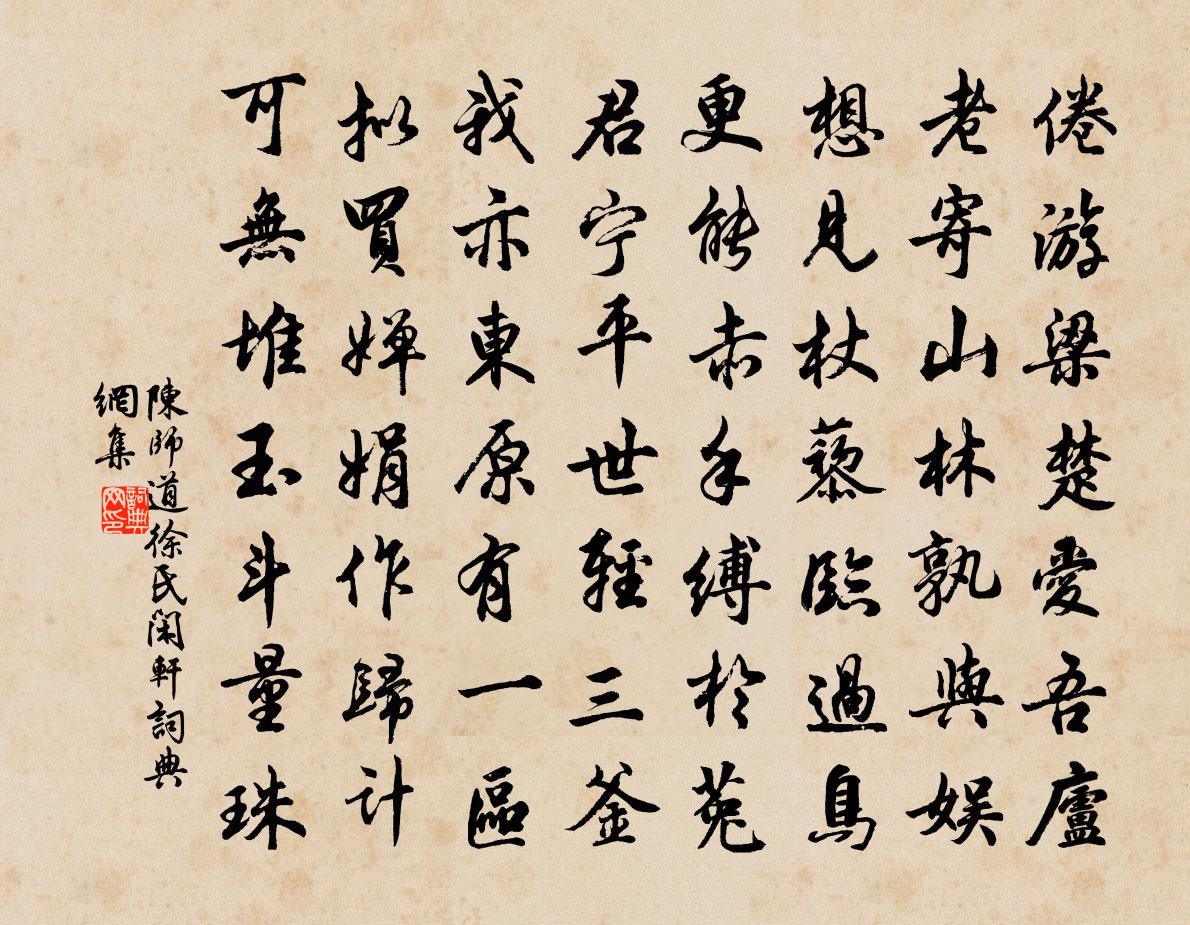 倦游梁楚愛吾廬
老寄山林孰與娛
想見杖藜臨過鳥
更能赤手縛於菟
君宁平世輕三釜
我亦東原有一區
拟買嬋娟作歸計
可無堆玉斗量珠
陳師道徐氏閑軒詞典
網集
詞典
网印